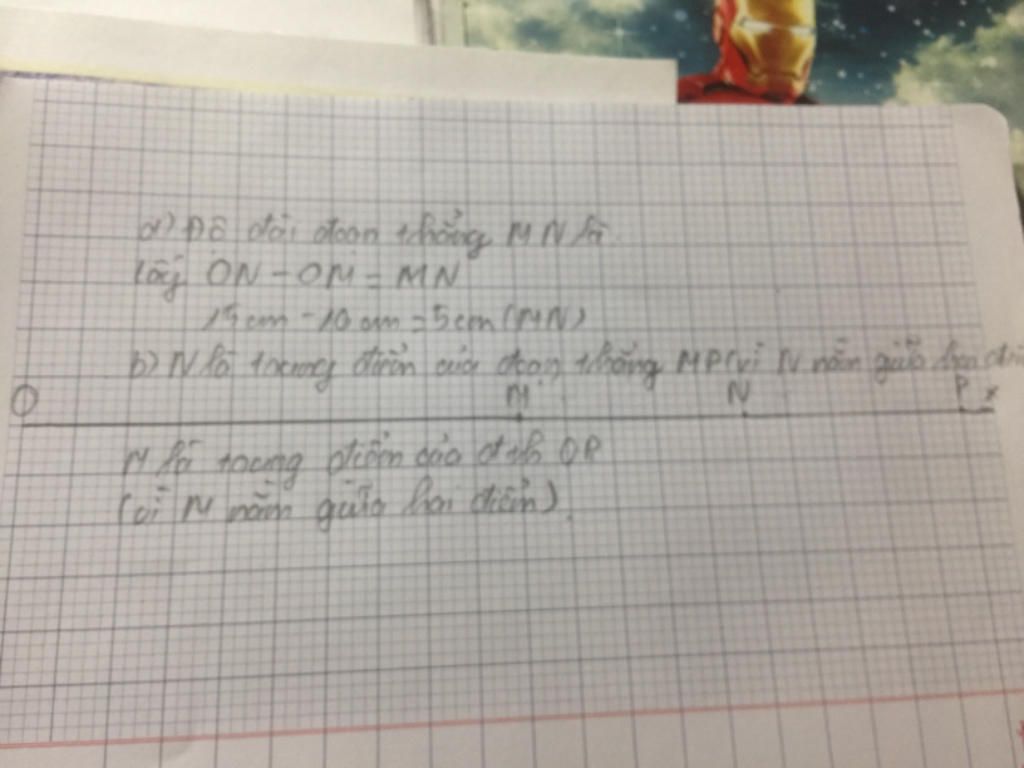 a) Độ dài đoạn thẳng MN là
Lấy ON - OM = MN
15cm - 10cm = 5cm (MN)
b) N là trung điểm của đoạn thẳng MP (vì N nằm giữa hai
O M N P x
N là trung điểm của đth OP
(vì N nằm giữa hai điểm).